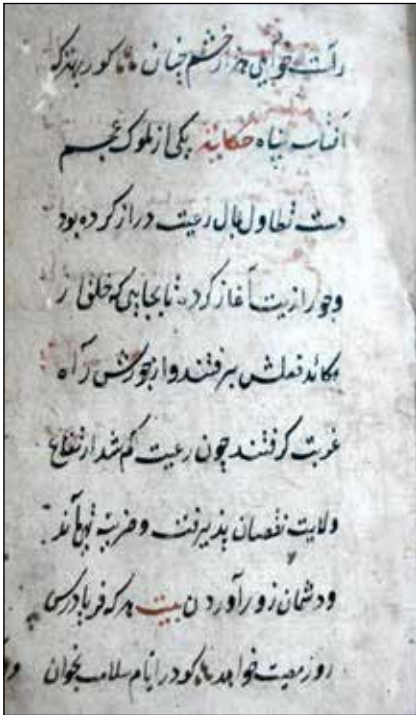 راست خواهی هزار چشم چنان کور بهتر که
آفتاب سیاه حکایت یکی از ملوک عجم
دست تطاول بمال رعیت دراز کرده بود
وجور اذیت آغاز کرده تا بجایی که خلق از
مکائد فعلش برفتند واز جورش راه
غربت گرفتند چون رعیت کم شد ارتفاع
ولایت نقصان پذیرفت وخزینه تهی ماند
ودشمنان زور آوردن بیت هر که فریادرس
روز مصیبت خواهد کو در ایام سلامت بجوان